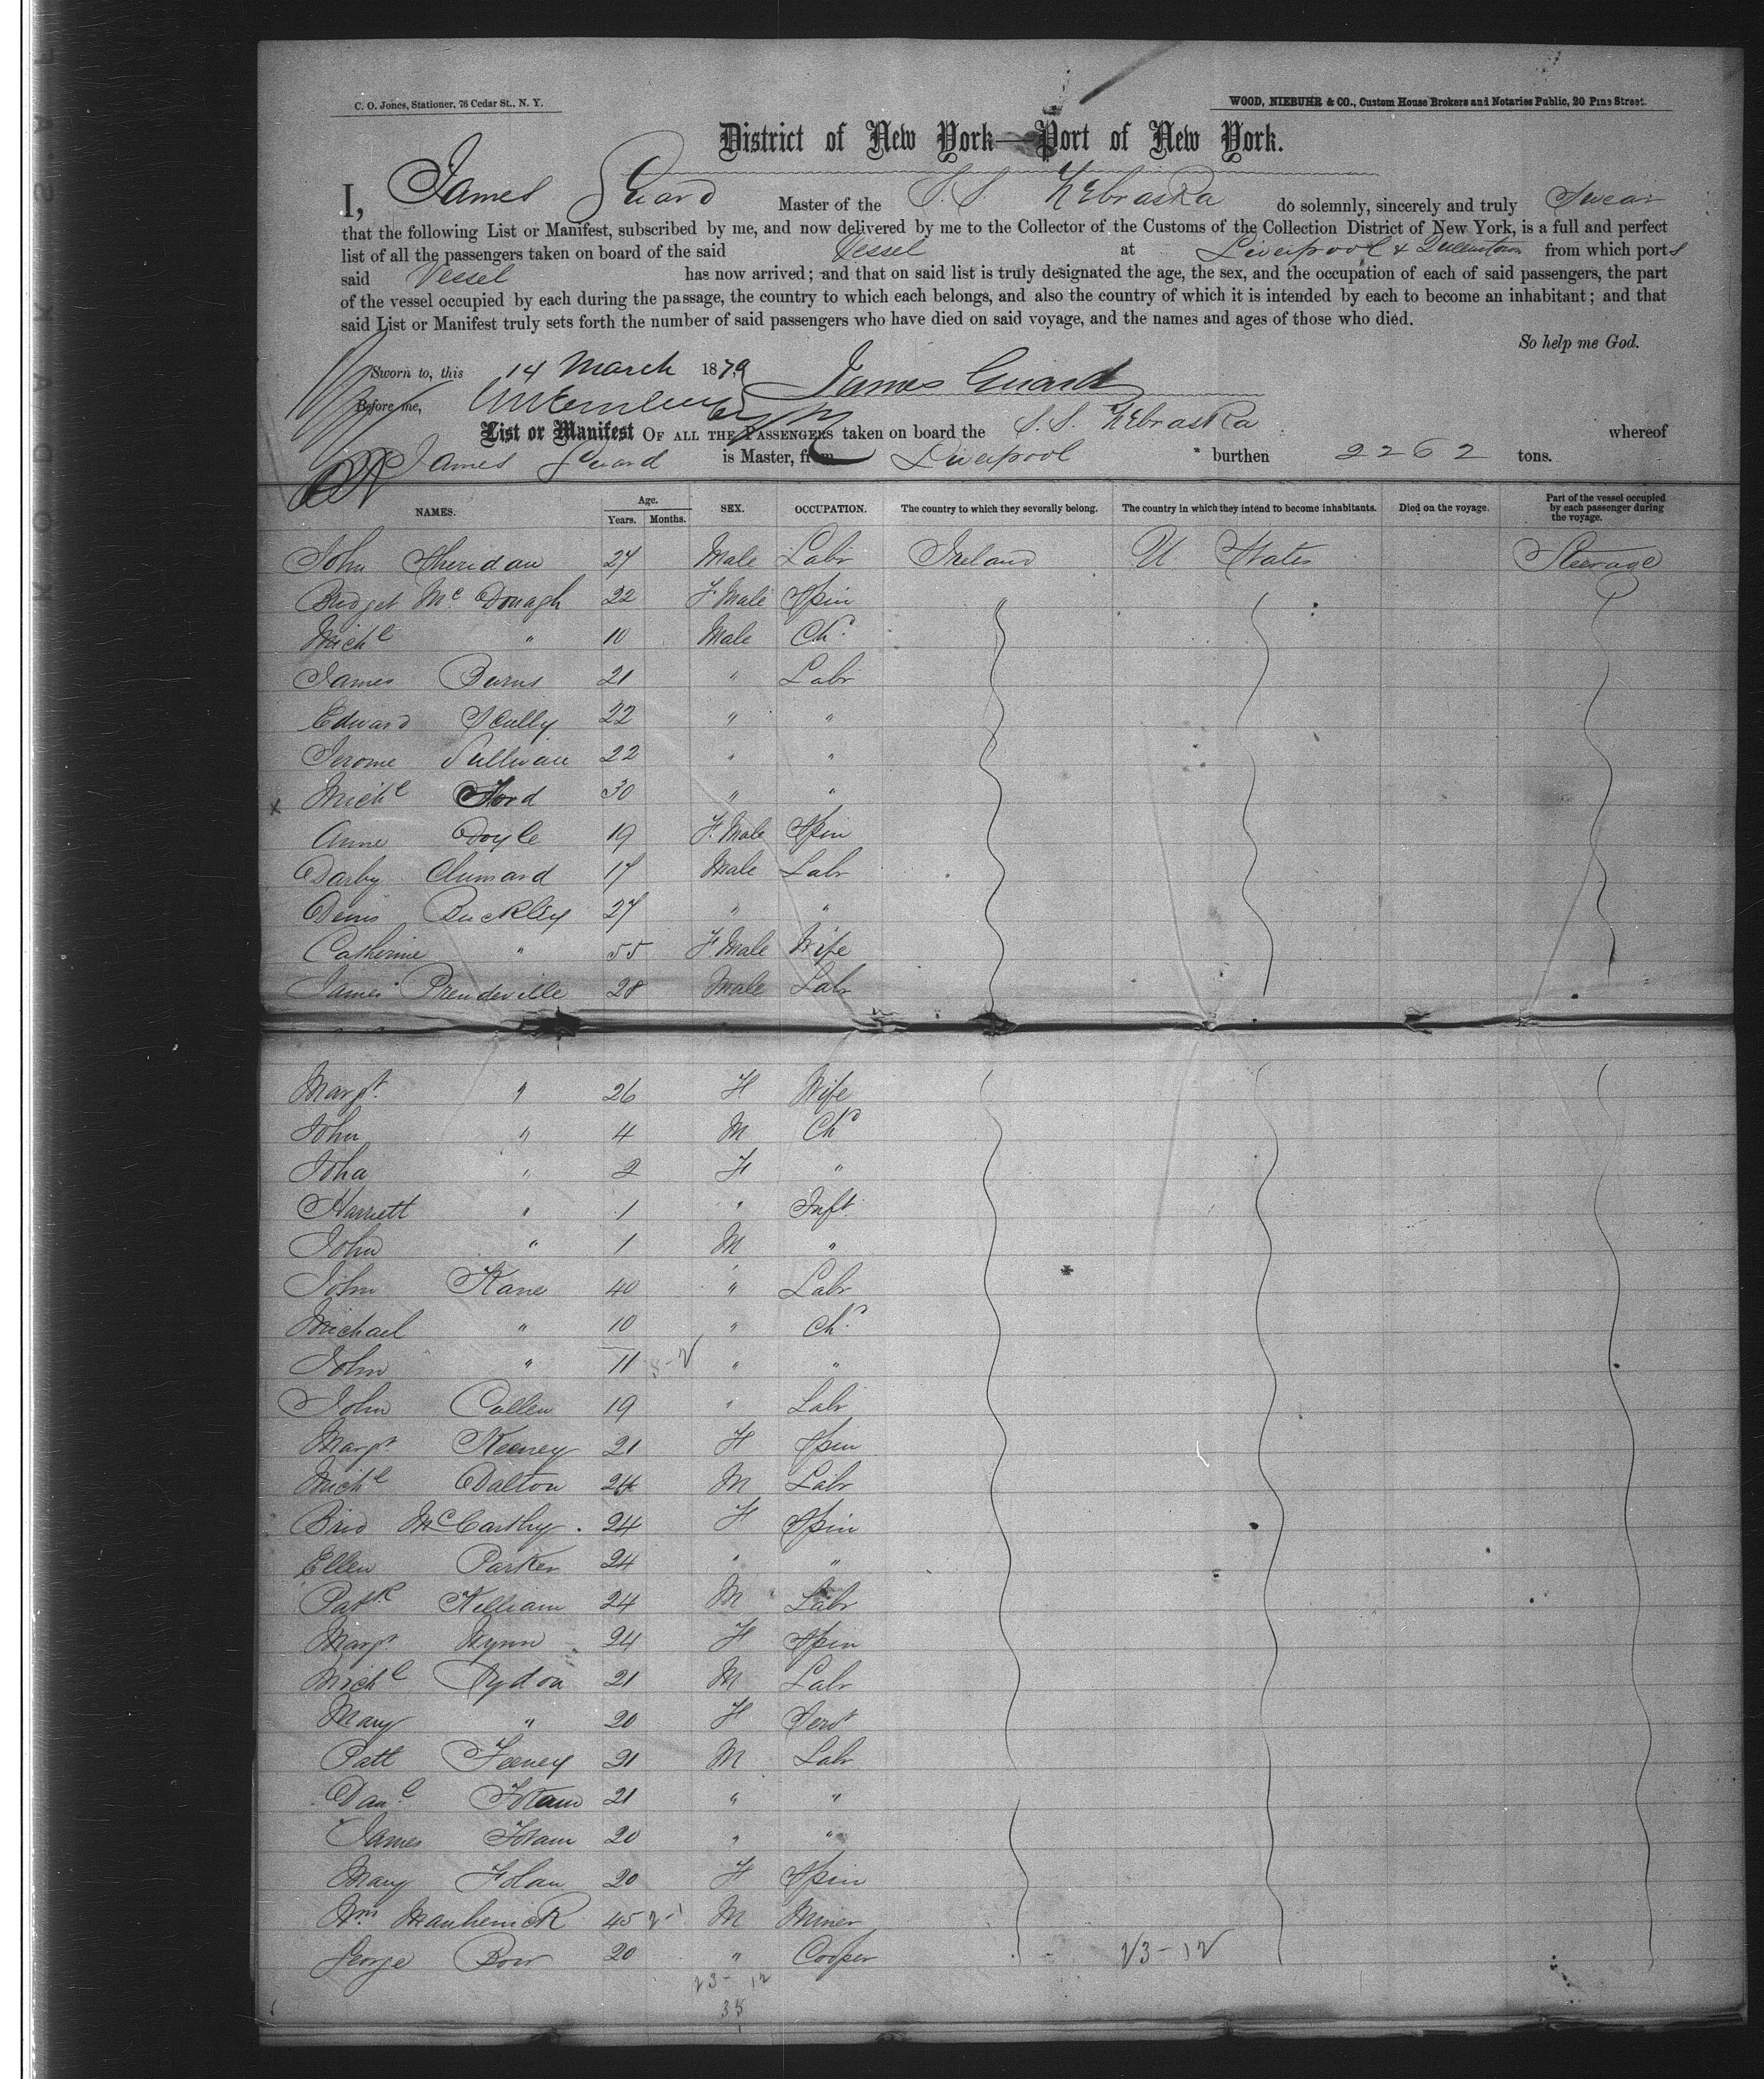 C. O. Jones, Stationer, 76 Cedar St., N. Y.
WOOD, NIEBUHR & CO., Custom House Brokers and Notaries Public, 20 Pine Street.
District of New York—Port of New York.
I, James Guard Master of the S.S. Nebraska do solemnly, sincerely and truly Swear
that the following List or Manifest, subscribed by me, and now delivered by me to the Collector of the Customs of the Collection District of New York, is a full and perfect
list of all the passengers taken on board of the said Vessel at Liverpool & Queenstown from which ports
said Vessel has now arrived; and that on said list is truly designated the age, the sex, and the occupation of each of said passengers, the part
of the vessel occupied by each during the passage, the country to which each belongs, and also the country of which it is intended by each to become an inhabitant; and that
said List or Manifest truly sets forth the number of said passengers who have died on said voyage, and the names and ages of those who died.
So help me God.
Sworn to, this 14 March 1879 James Guard
Before me,
List or Manifest OF ALL THE PASSENGERS taken on board the S.S. Nebraska whereof
James Guard is Master, from Liverpool burthen 2262 tons.
NAMES. Age. Years. Months. SEX. OCCUPATION. The country to which they severally belong. The country in which they intend to become inhabitants. Died on the voyage. Part of the vessel occupied by each passenger during the voyage.
John Sheridan 27 Male Labr Ireland U States Steerage
Bridget McDonagh 22 F Male Spin
Michl " 10 Male Chd
James Burns 21 " Labr
Edward Scully 22 " "
Jerome Sullivan 22 " "
x Michl Ford 30 " "
Anne Doyle 19 F. Male Spin
Darby 17 Male Labr
Denis Buckley 27 " "
Catherine " 55 F Male Wife
James Prendeville 28 Male Labr
Margt " 26 F Wife
John " 4 M Chd
Joha " 2 F "
Harriett " 1 " Inft
John " 1 M "
John Kane 40 " Labr
Michael " 10 " Chd
John " 11 " "
John Cullen 19 " Labr
Margt Keeney 21 F Spin
Michl Dalton 24 M Labr
Brid McCarthy 24 F Spin
Ellen Parker 24 " "
Patk Killiam 24 M Labr
Margt Wynn 24 F Spin
Michl Lydon 21 M Labr
Mary " 20 F Servt
Patt Feeney 21 M Labr
Danl 21 " "
James Folan 20 " "
Mary Folan 20 F Spin
Wm 45 M Miner
George Bow 20 " Cooper
23-12
23-12
35